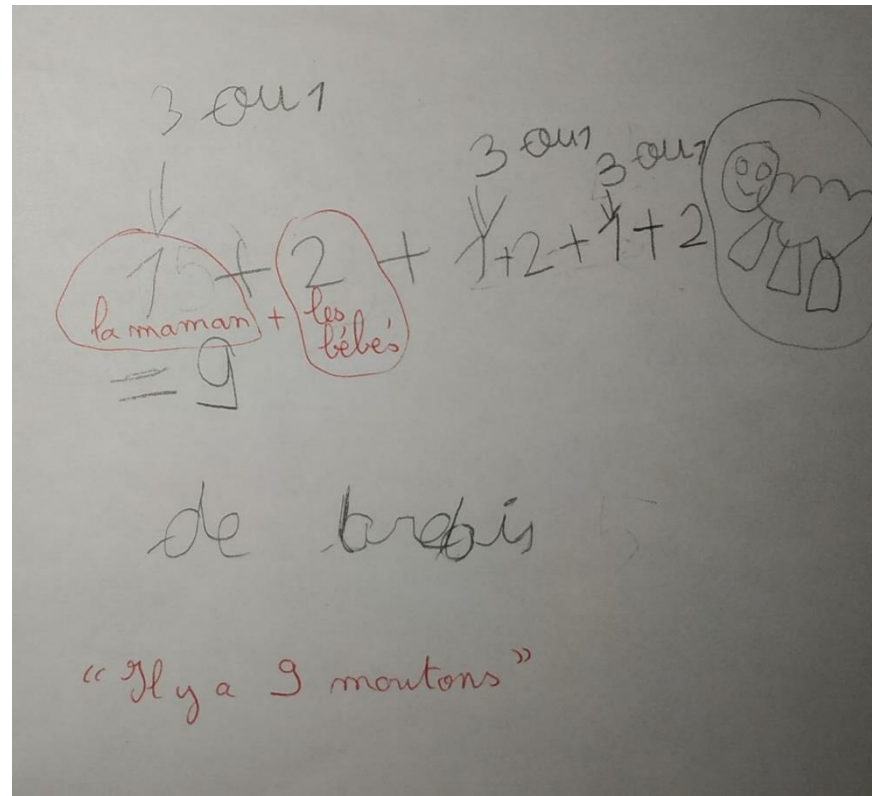 3 ou 1
3 ou 1
3 ou 1
1 + 2 + 1 + 2 + 1 + 2
la maman + les bébés
= 9
de brebis
“Il y a 9 moutons”